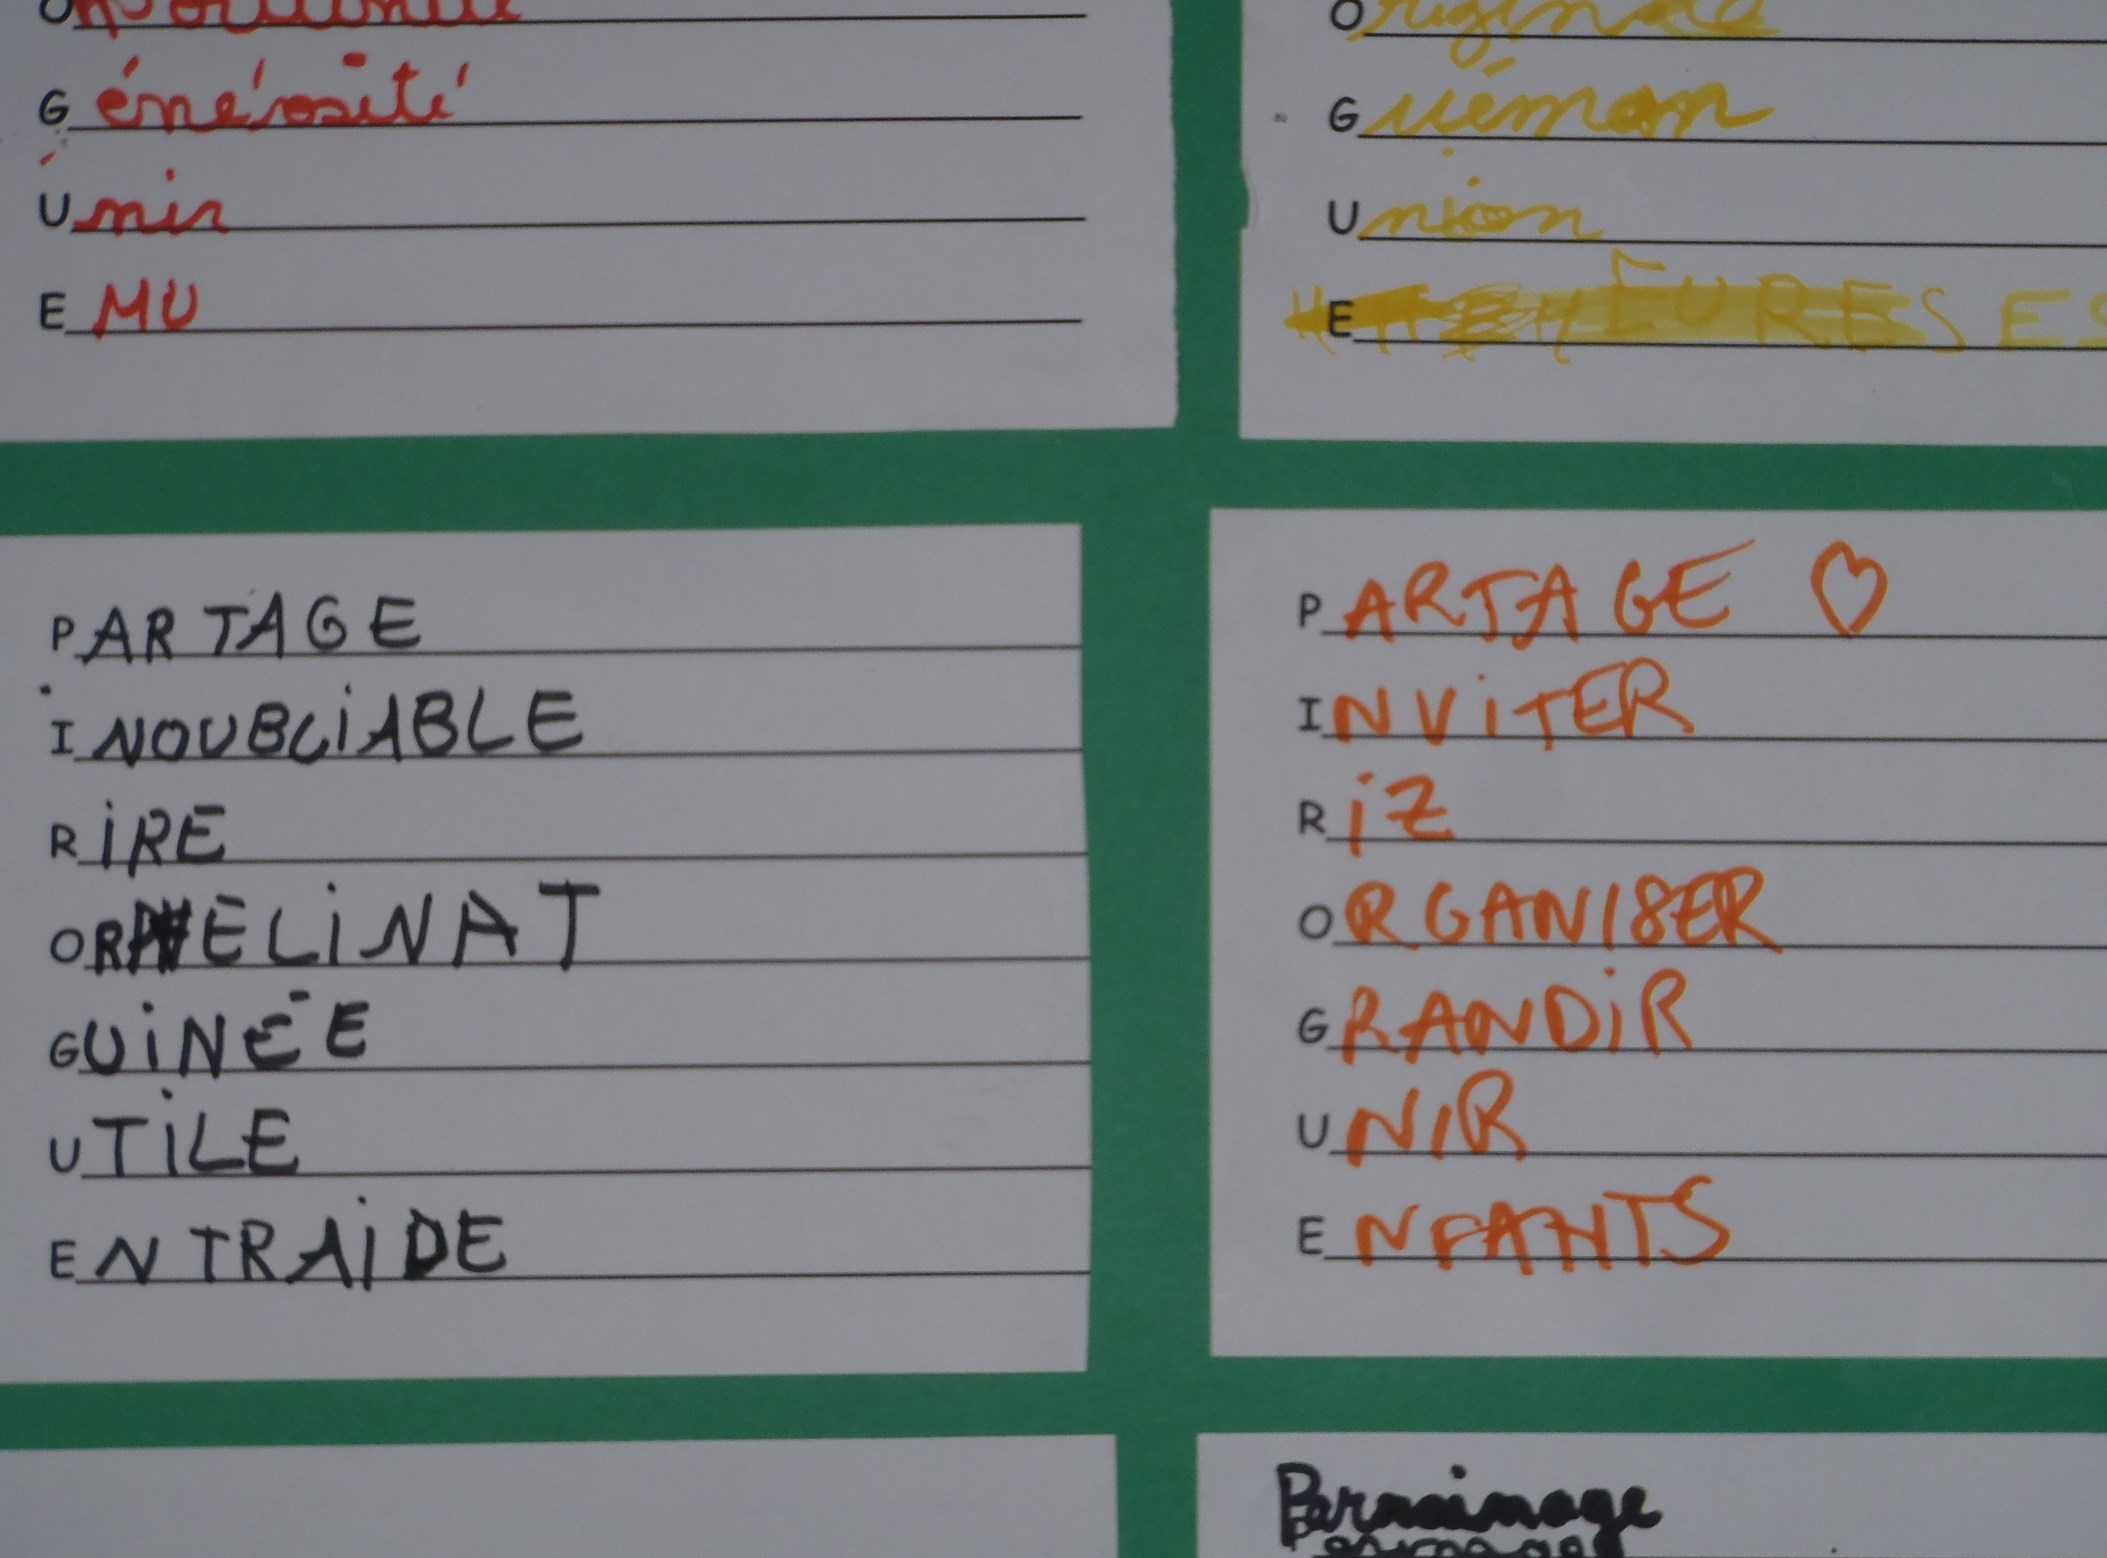 Générosité
Unir
EMU
Originale
Guéman
Union
EURESES
PARTAGE
INOUBLIABLE
RIRE
ORPHELINAT
GUINÉE
UTILE
ENTRAIDE
PARTAGE ♡
INVITER
RIZ
ORGANISER
GRANDIR
UNIR
ENFANTS
Parrainage